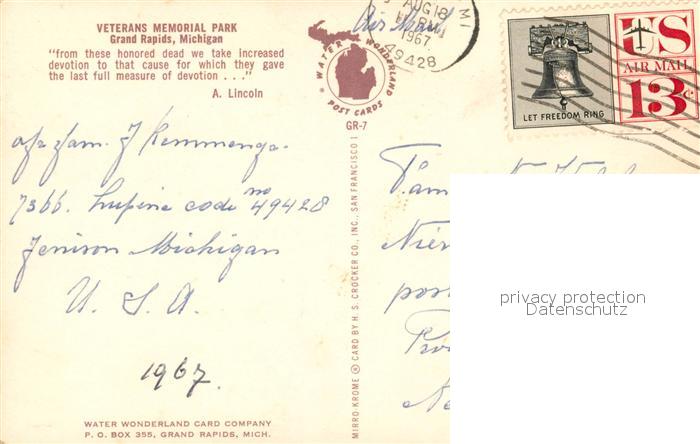 VETERANS MEMORIAL PARK
Grand Rapids, Michigan
"from these honored dead we take increased
devotion to that cause for which they gave
the last full measure of devotion . . ."
A. Lincoln
WATER WONDERLAND
POST CARDS
GR-7
Air Mail
AUG 18
1967
MI
49428
LET FREEDOM RING
US
AIR MAIL
13c
fam. J Remmenga.
7366. Lupine code no 49428
Jenison Michigan
U. S. A.
1967.
WATER WONDERLAND CARD COMPANY
P. O. BOX 355, GRAND RAPIDS, MICH.
MIRRO-KROME ® CARD BY H. S. CROCKER CO., INC., SAN FRANCISCO 1
Fam
post
privacy protection
Datenschutz